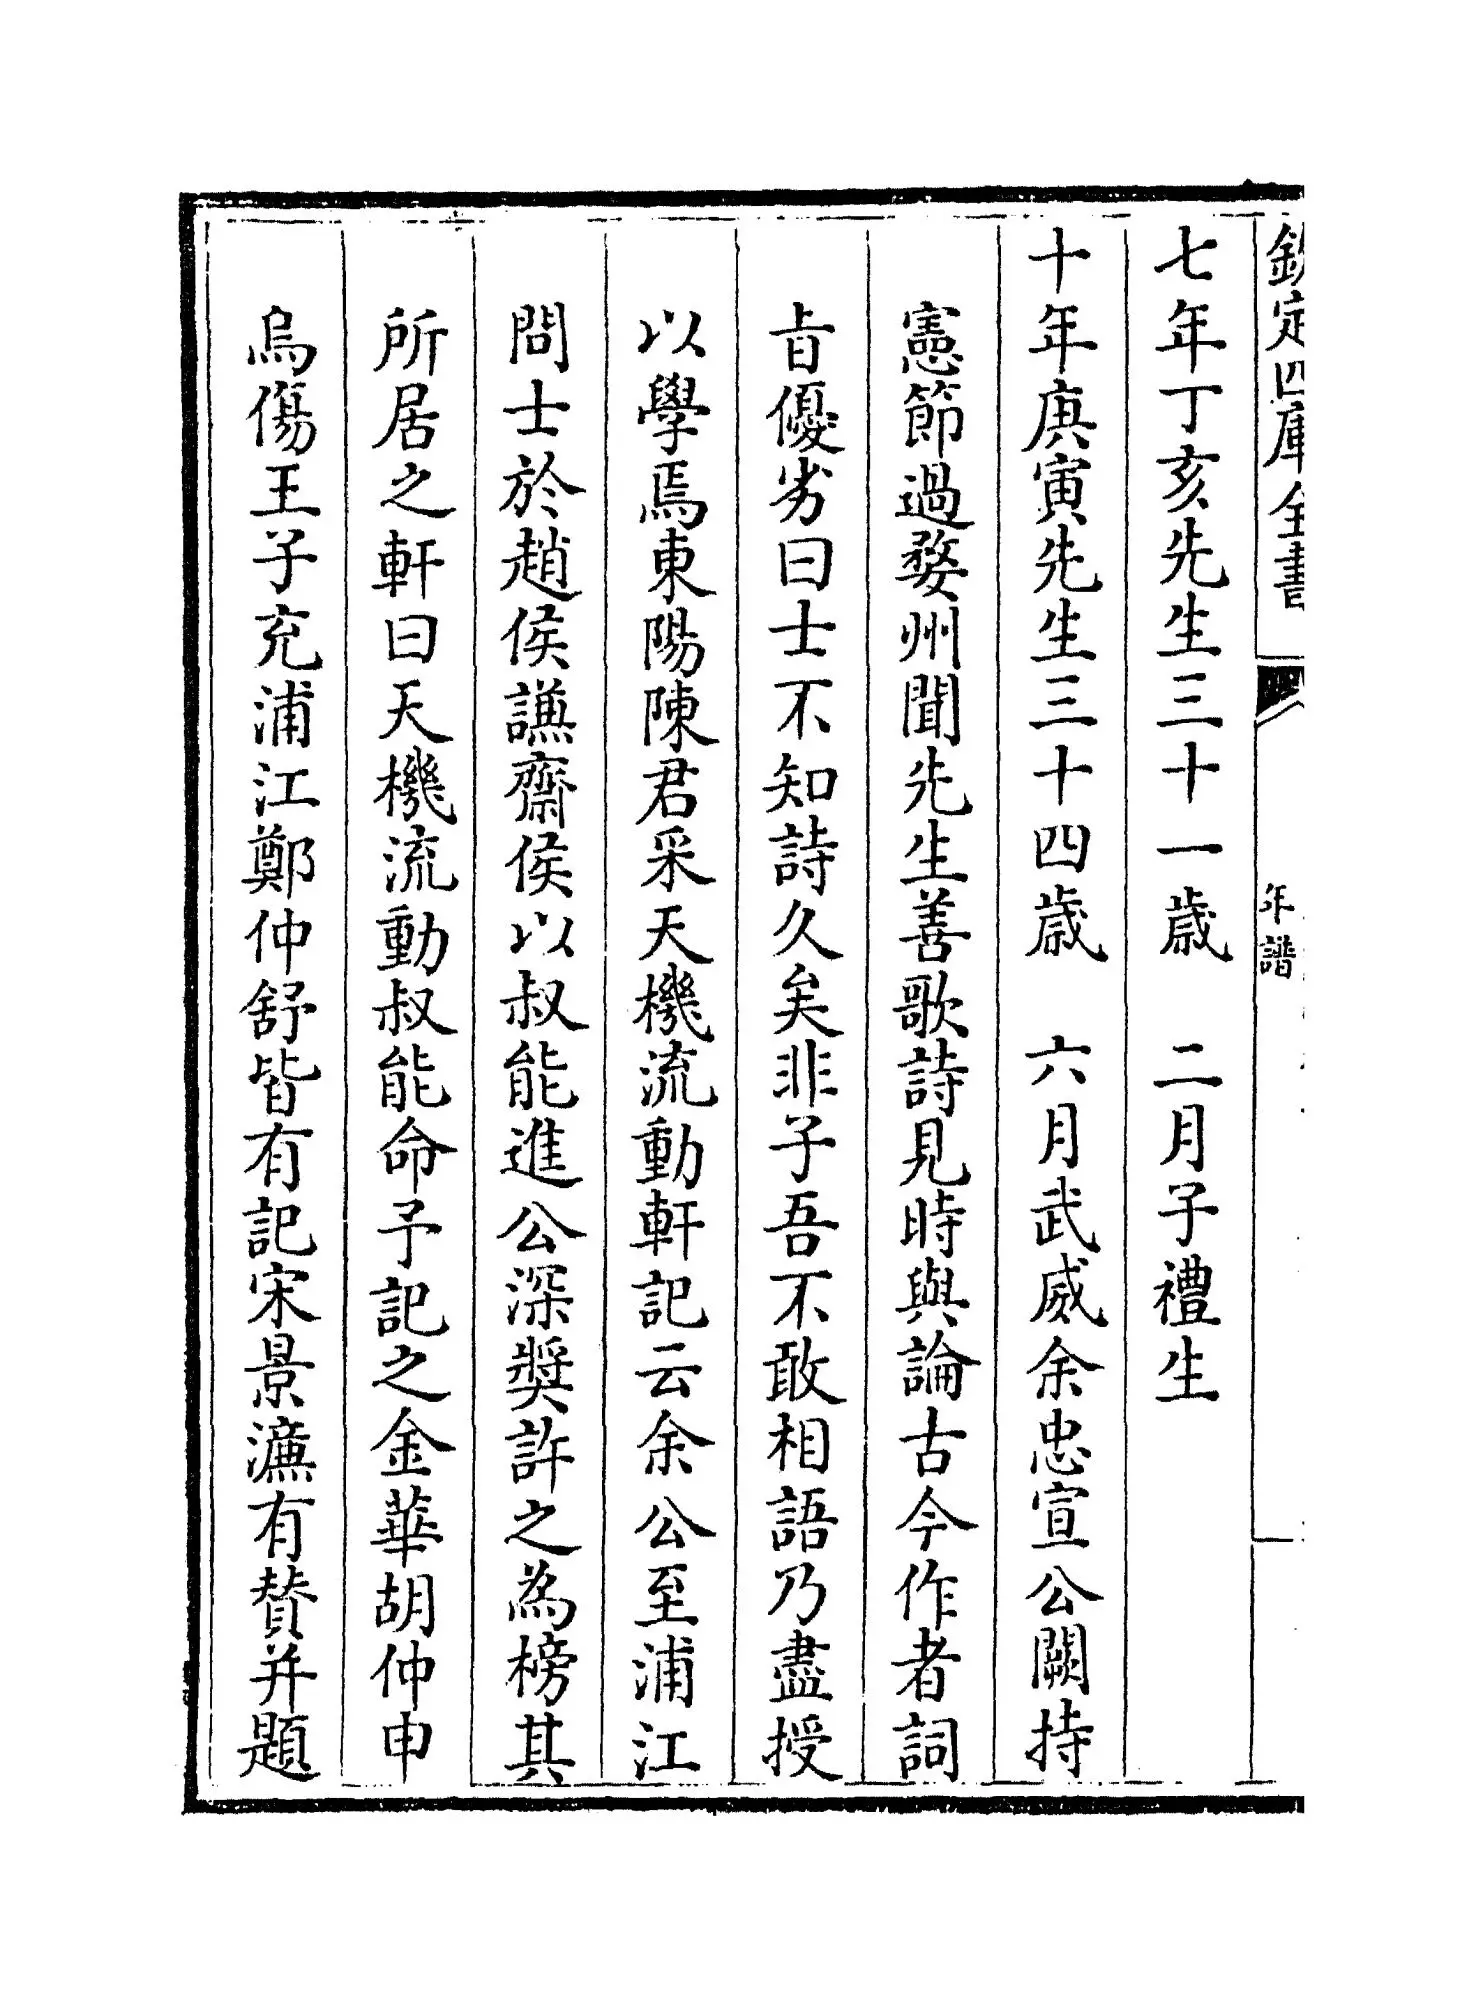 欽定四庫全書
年譜
七年丁亥先生三十一歲　二月子禮生
十年庚寅先生三十四歲　六月武威余忠宣公闕持
憲節過婺州聞先生善歌詩見時與論古今作者詞
㫖優劣曰士不知詩久矣非子吾不敢相語乃盡授
以學焉東陽陳君采天機流動軒記云余公至浦江
問士於趙侯謙齋侯以叔能進公深奬許之為榜其
所居之軒曰天機流動叔能命予記之金華胡仲申
烏傷王子充浦江鄭仲舒皆有記宋景濂有賛并題